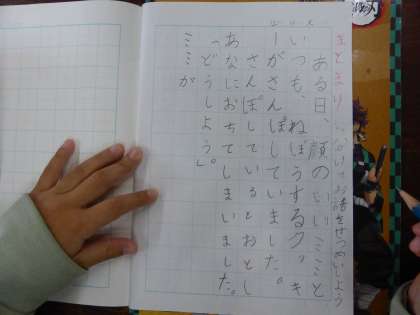 まとまり お話をせつめいしよう
ある日、顔のいいミミと
いつも、ねぼうするクッキ
ーがさんぽしていました。
さんぽしているとおとし
あなにおちてしまいました。
「どうしよう。」
ミミが